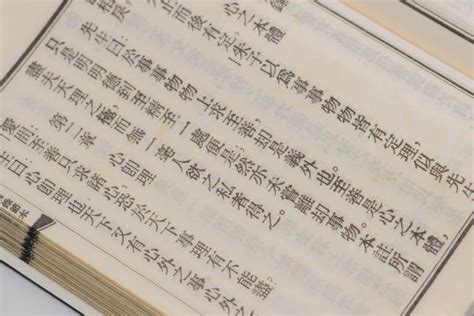 心之本體
而後有定朱子以為事事物物皆有定理，似與先
相戾。
先生曰：於事事物物上求至善，却是義外也。至善是心之本體，
只是明明德到至精至一處便是，然亦未嘗離却事物。本註所謂
盡夫天理之極，而無一毫人欲之私者得之。
第一義 心即理
愛問：至善只求諸心，恐於天下事理有不能盡。
生曰：心即理也天下又有心外之事心外